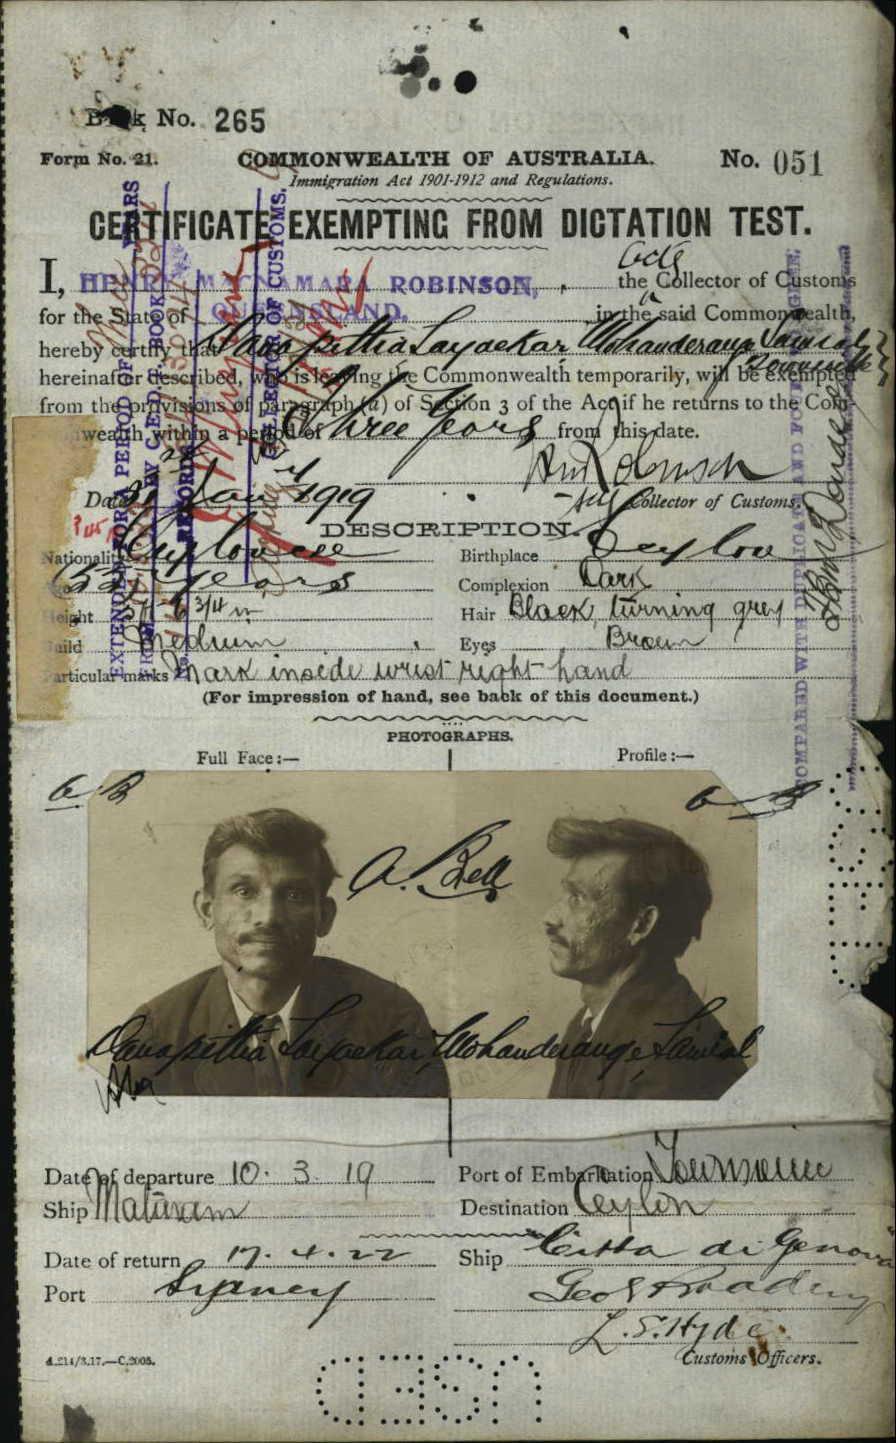 Book No. 265
Form No. 21.
COMMONWEALTH OF AUSTRALIA.
No. 051
Immigration Act 1901-1912 and Regulations.
CERTIFICATE EXEMPTING FROM DICTATION TEST.
I, HENRY MACNAMARA ROBINSON, the Collector of Customs
for the State of QUEENSLAND. in the said Commonwealth,
hereby certify that Mohanderange Samial
hereinafter described, who is leaving the Commonwealth temporarily, will be exempted
from the provisions of paragraph (a) of Section 3 of the Act if he returns to the Com-
wealth within a period of Three Years from this date.
Date 31 Jan 1919
Collector of Customs.
DESCRIPTION.
Nationality Ceylonese
Birthplace Ceylon
years
Complexion Dark
Height 5ft 6 3/4 in
Hair Black, turning grey
Build Medium
Eyes Brown
Particular marks Mark inside wrist right hand
(For impression of hand, see back of this document.)
PHOTOGRAPHS.
Full Face :—
Profile :—
A. Bell
Mohanderange Samial
Date of departure 10. 3. 19
Port of Embarkation Townsville
Ship Mataram
Destination Ceylon
Date of return 17. 4. 22
Ship Citta di Genova
Port Sydney
L. S. Hyde
A.214/3.17.—C.2005.
Customs Officers.
EXTENDED FOR A PERIOD OF YEARS
BY C.E.D.T. BOOK
RECORD
COLLECTOR OF CUSTOMS.
COMPARED WITH DUPLICATE AND FOUND TO AGREE.
USED